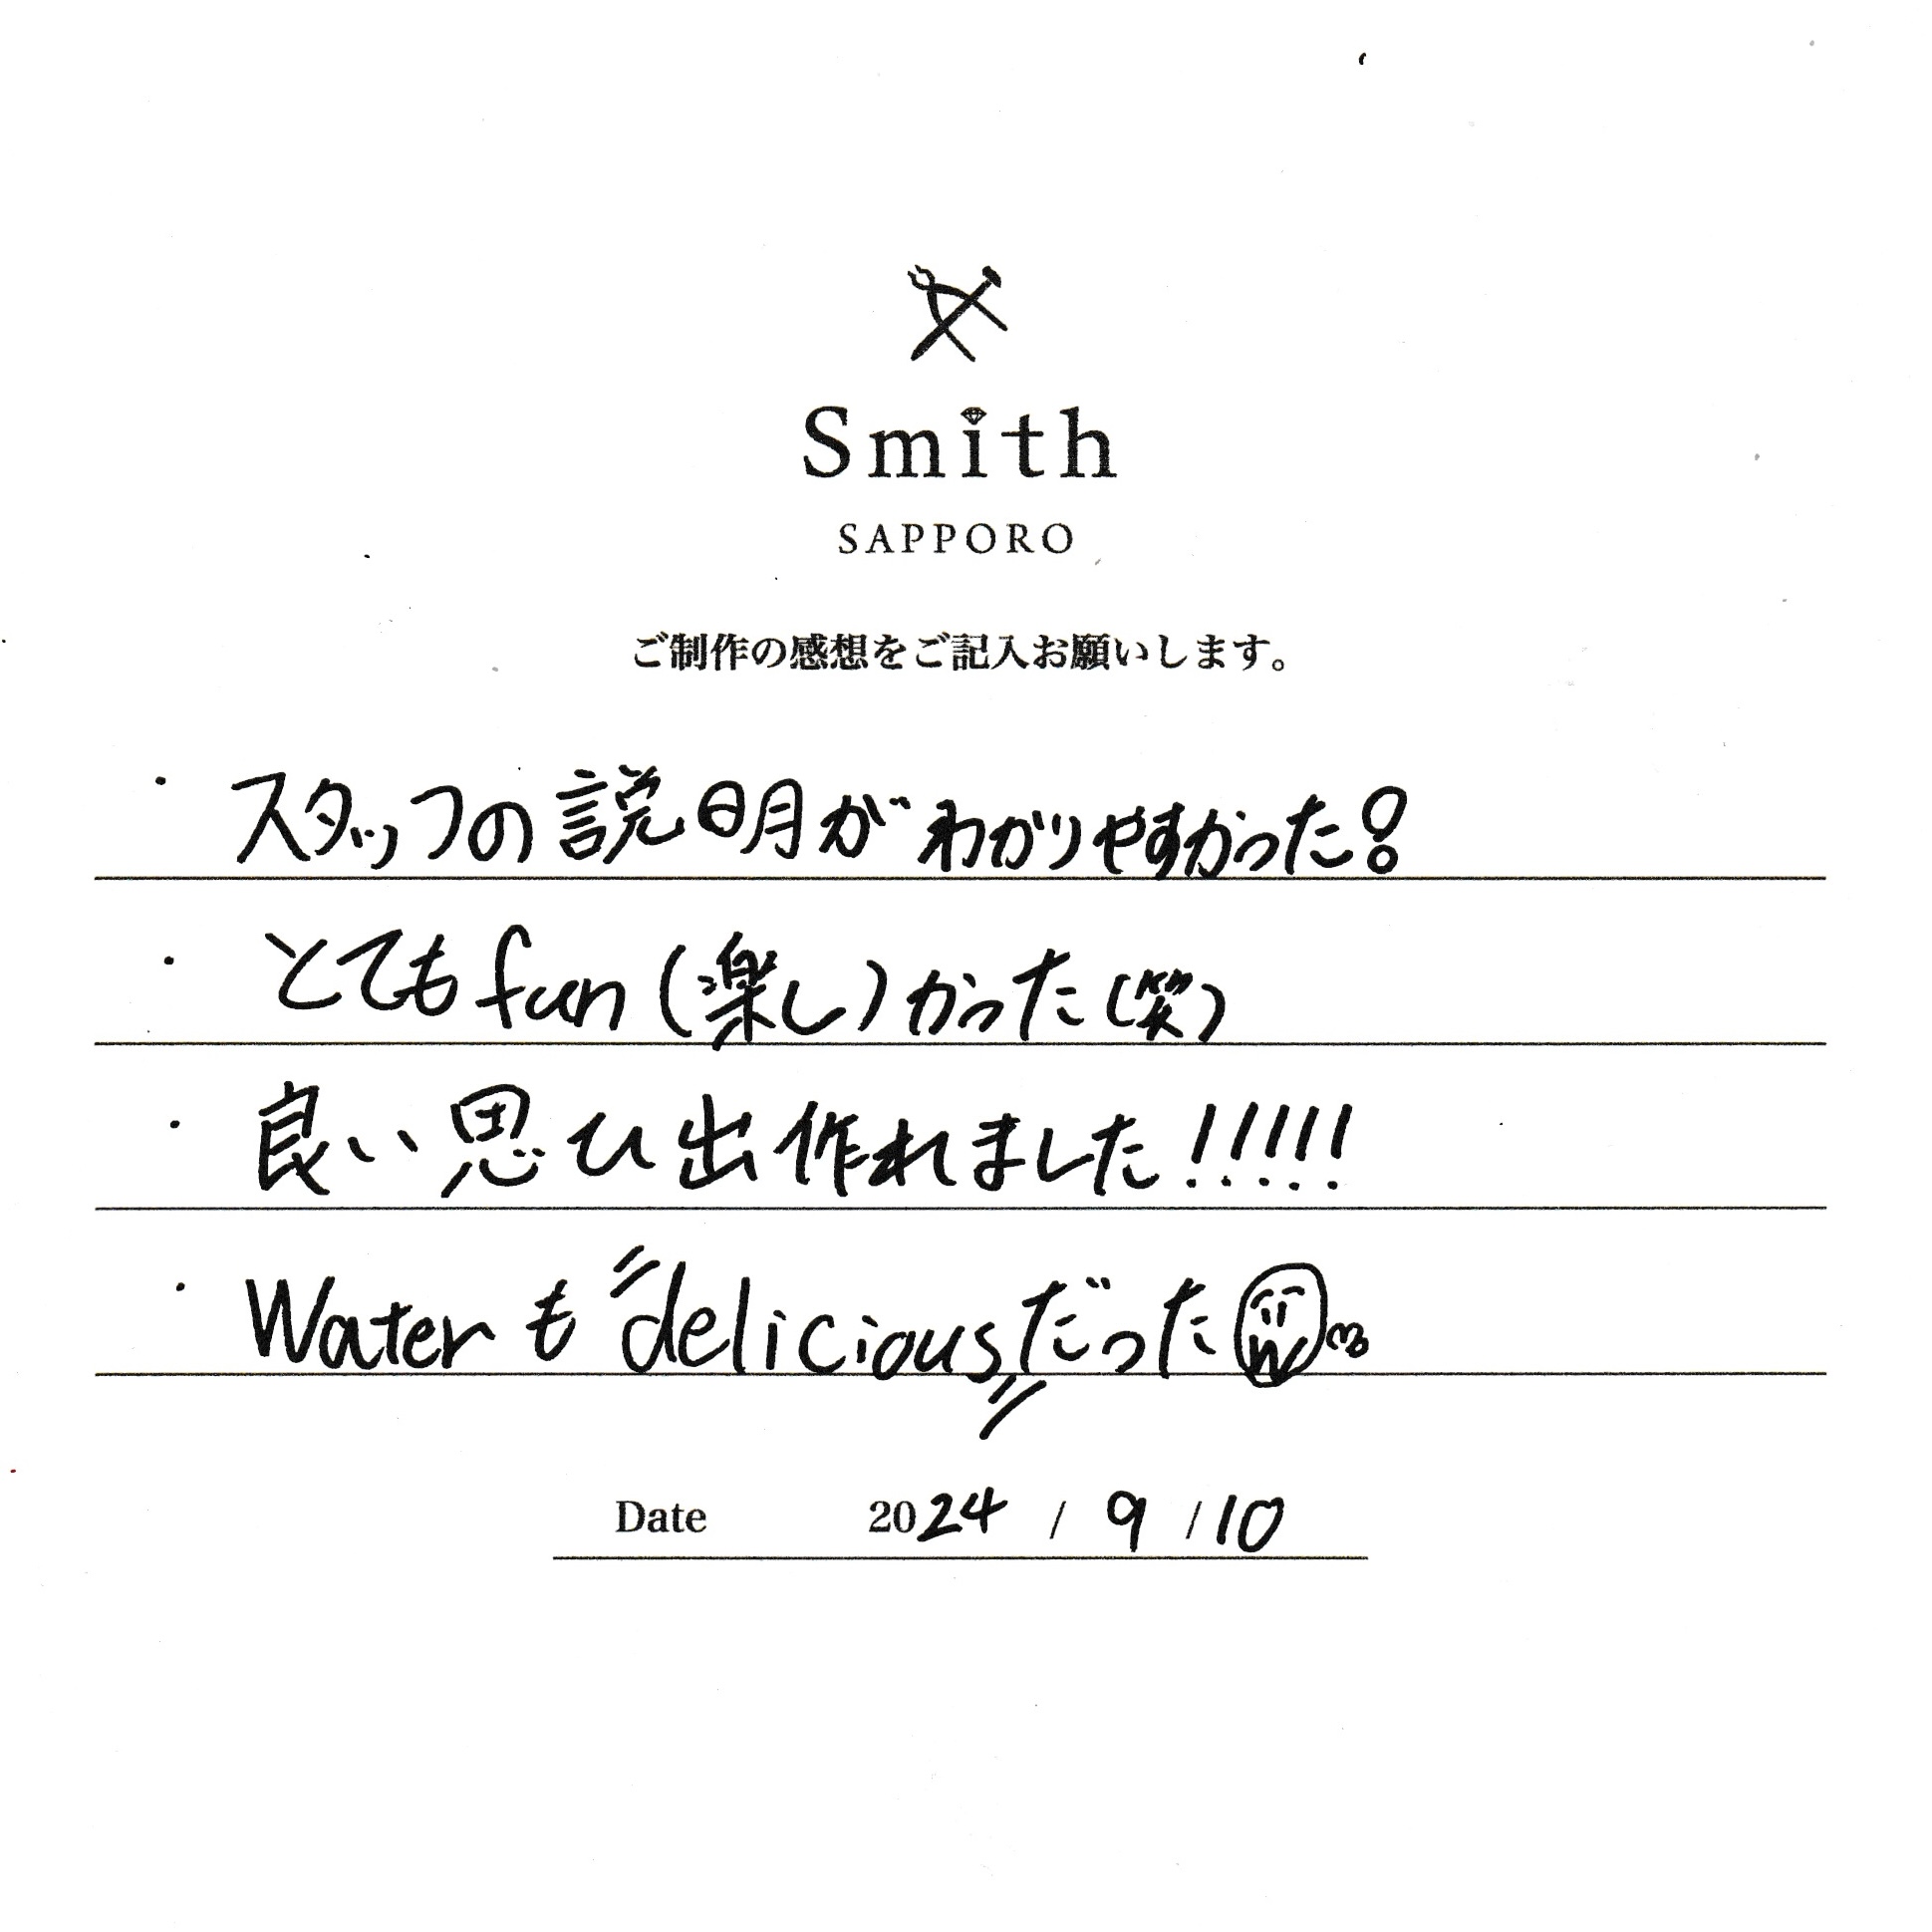 Smith
SAPPORO
ご制作の感想をご記入お願いします。
・スタッフの説明がわかりやすかった!
・とてもfun(楽し)かった(笑)
・良い思ひ出作れました!!!!!
・Waterも〃delicious〃だった
Date 2024 / 9 / 10